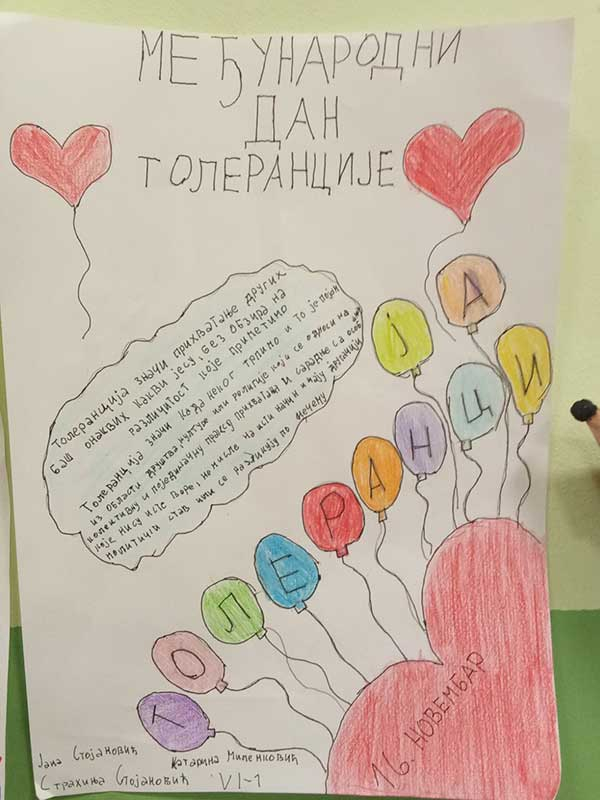 МЕЂУНАРОДНИ
ДАН
ТОЛЕРАНЦИЈЕ
Толеранција значи прихватање других
баш онаквих какви јесу без обзира на
различитост које приметимо
Толеранција значи када неког толимо и то је појам
из области друштва, културе или религије који се односи на
колективну и појединачну праксу прихватања и сарадње са особама
које нису исте вере, но мисле на исти начин имају другачији
политички став или се разликују по нечему
ТОЛЕРАНЦИЈА
16. НОВЕМБАР
Јана Стојановић
Катарина Миленковић
Страхиња Стојановић VI-1